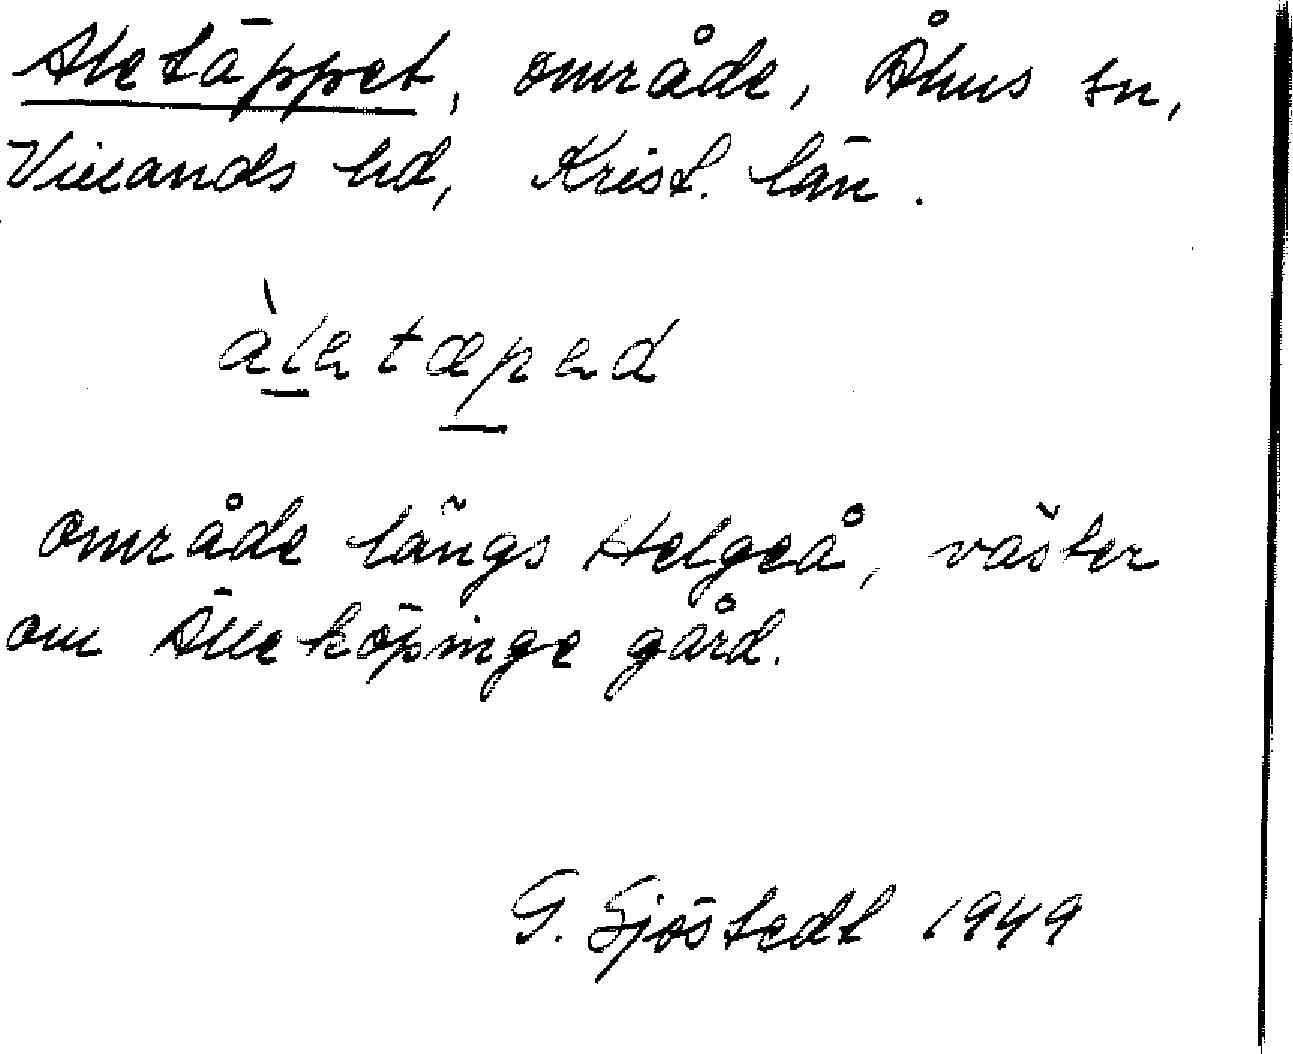 Aletäppet, område, Åhus sn,
Villands hd, Krist. län.
àletæped
område längs Helgeå, väster
om Älleköpinge gård.
G. Sjöstedt 1949